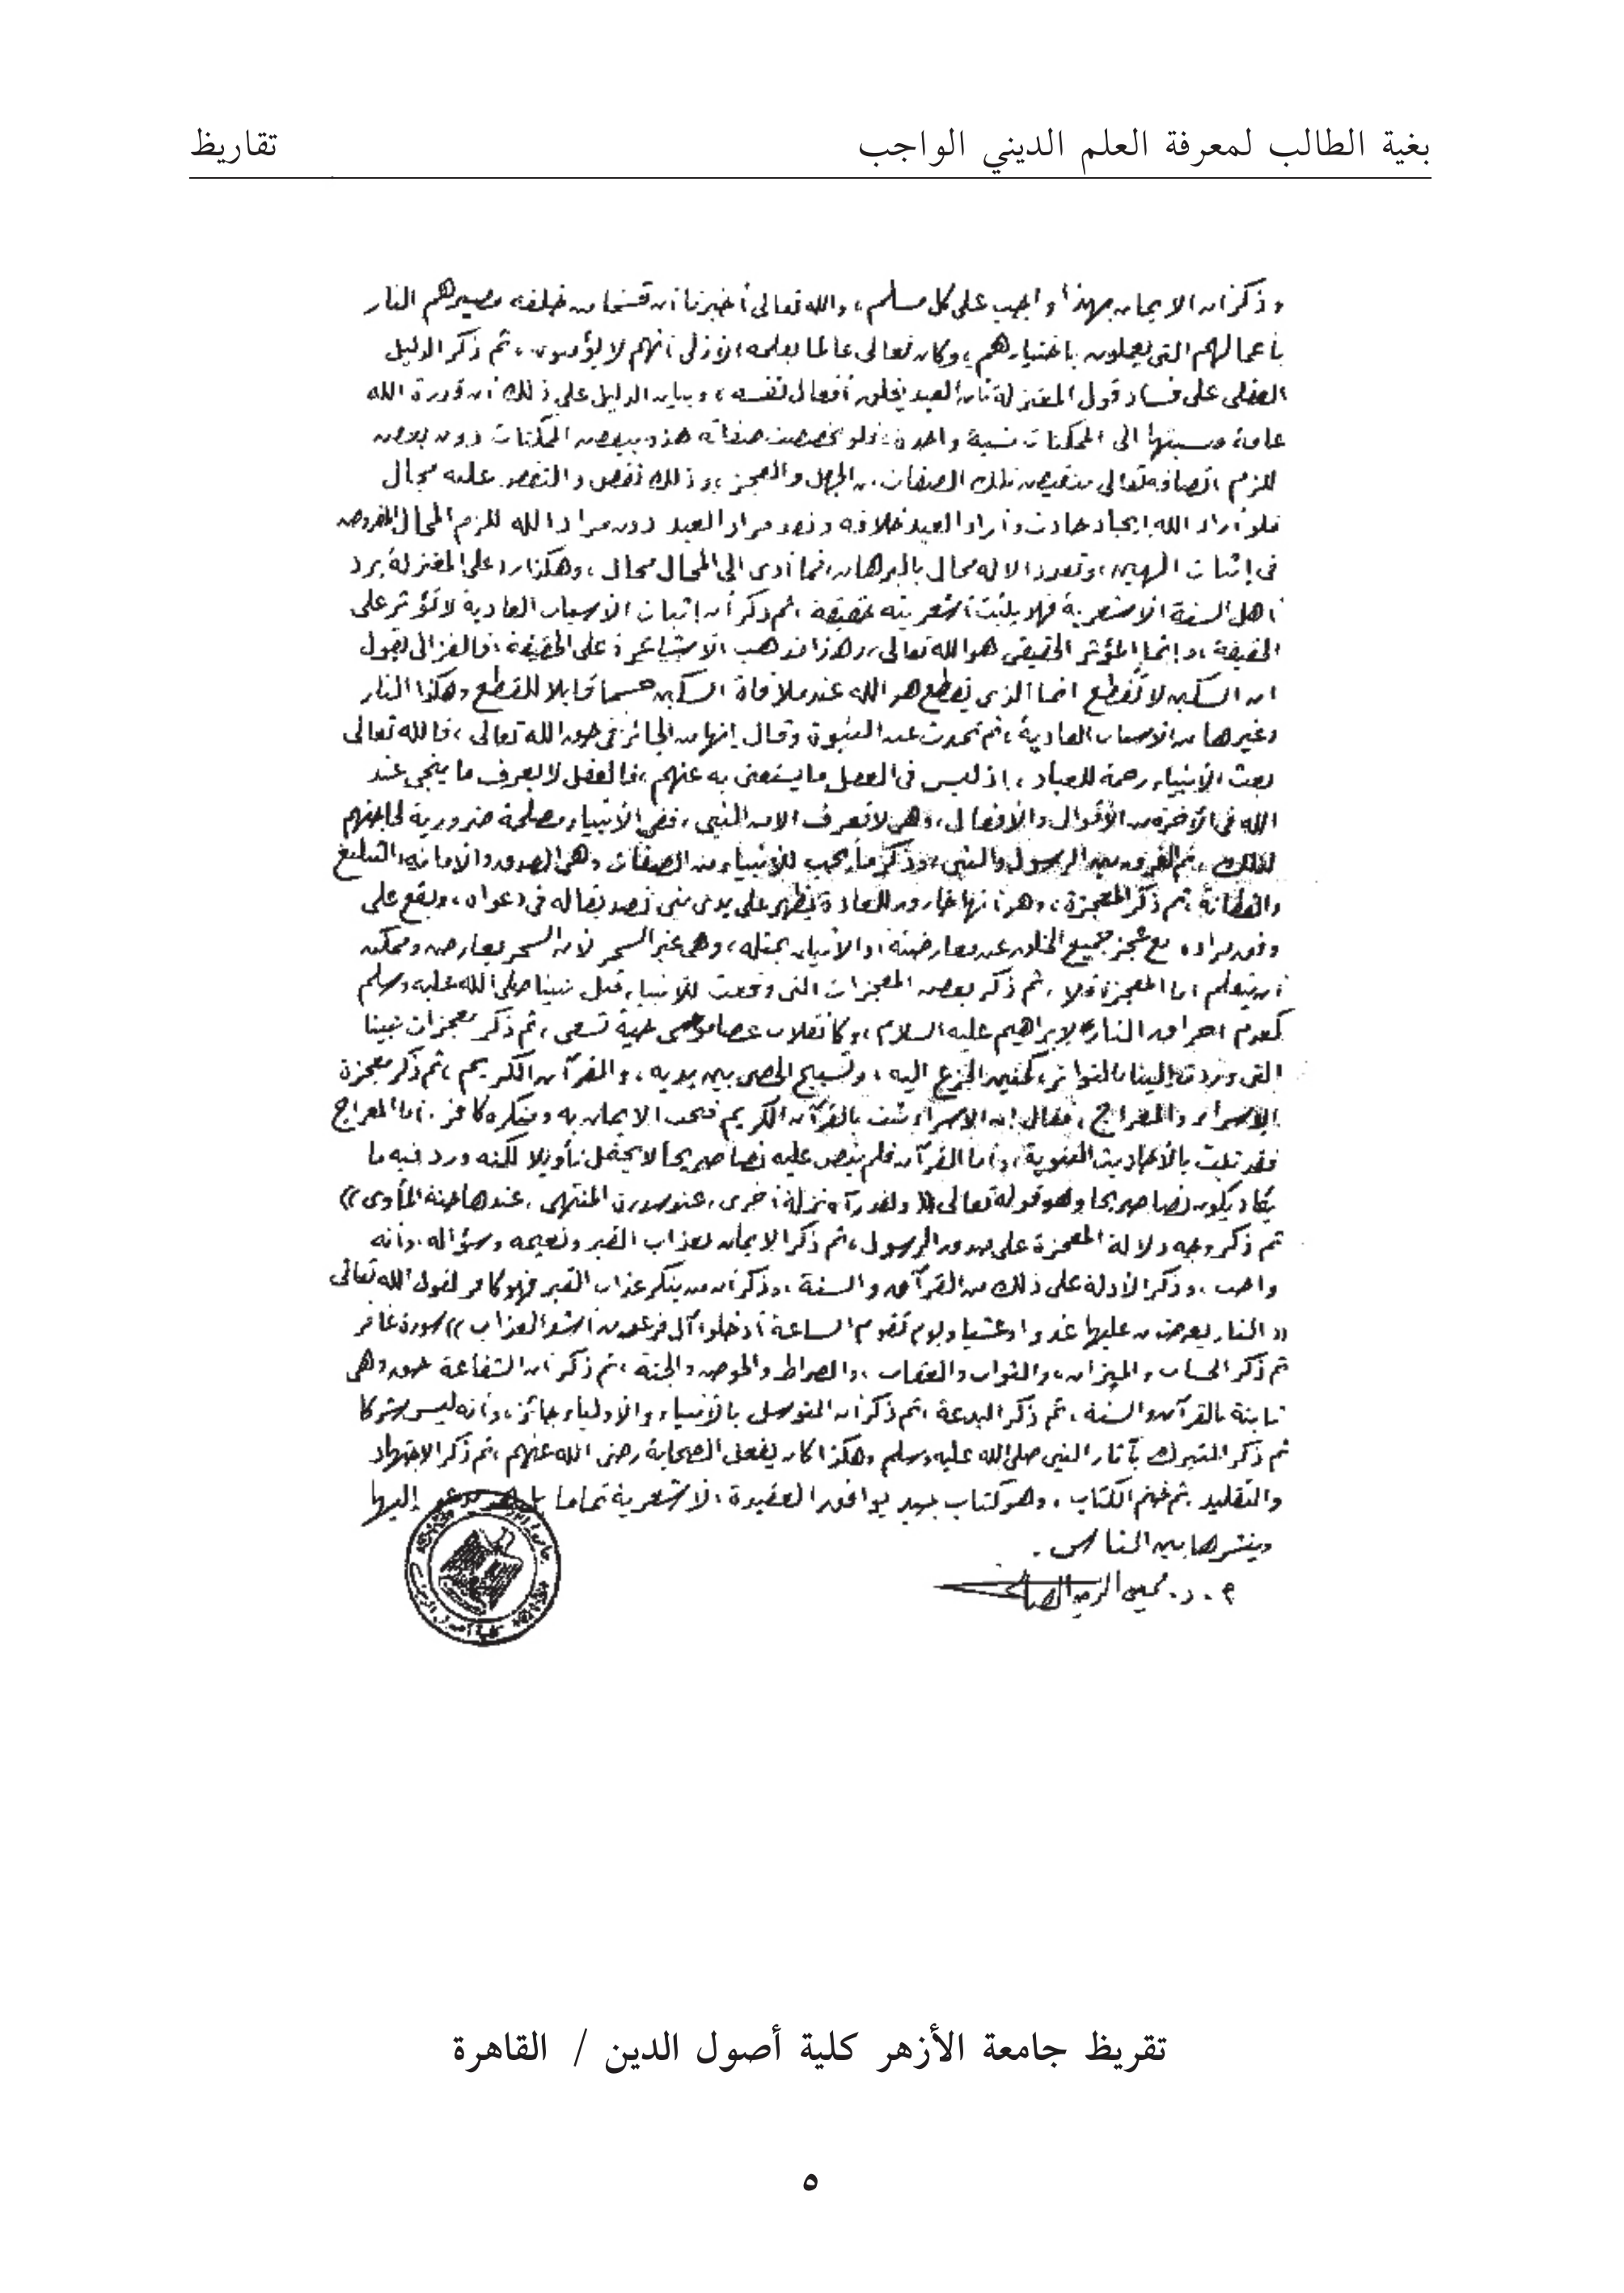 بغية الطالب لمعرفة العلم الديني الواجب
تقاريظ
وذكر أن الايمان بهذا واجب على كل مسلم، والله تعالى أخبرنا أن قسما من خلقه مصيرهم النار
بأعمالهم التى يعملون باختيارهم، وكان تعالى عالما بعلمه الأزلى أنهم لا يؤمنون، ثم ذكر الدليل
العقلى على فساد قول المعتزلة بأن العبد يخلق أفعال نفسه، وبيان الدليل على ذلك أن قدرة الله
عامة ونسبتها الى الممكنات نسبة واحدة، فلو تخصصت صفاته هذه ببعض الممكنات دون بعض
للزم اتصافه تعالى بنقيض تلك الصفات من الجهل والعجز، وذلك نقص والنقص عليه محال
فلو أراد الله إيجاد حادث وأراد العبد خلافه ونفذ مراد العبد دون مراد الله للزم المحال المفروض
فى إثبات إلهين، وتعدد الاله محال بالبرهان، فما أدى الى المحال محال، وهكذا ردا على المعتزلة يرد
أهل السنة الأشعرية فهو يثبت أشعريته حقيقة، ثم ذكر أن إثبات الأسباب العادية لا تؤثر على
الحقيقة، وإنما المؤثر الحقيقى هو الله تعالى، وهذا مذهب الأشاعرة على الحقيقة، فالغزالى يقول
ان السكين لا تقطع انما الذى يقطع هو الله عند ملاقاة السكين جسما قابلا للقطع وهكذا النار
وغيرها من الأسباب العادية، ثم تحدث عن النبوة وقال إنها من الجائز فى حق الله تعالى، فالله تعالى
بعث الأنبياء رحمة للعباد، إذ ليس فى العقل ما يستغنى به عنهم، فالعقل لا يعرف ما ينجى عند
الله فى الآخرة من الأقوال والأفعال، وهى لا تعرف الا من النبى، ففى الأنبياء مصلحة ضرورية لحاجتهم
لذلك، ثم الفرق بين الرسول والنبى، وذكر ما يجب للأنبياء من الصفات وهى الصدق والأمانة والتبليغ
والفطانة، ثم ذكر المعجزة، وهى أنها خارق للعادة يظهر على يد مدعى نبى تصديقا له فى دعواه، ويقع على
وفق مراده مع عجز جميع الخلق عن معارضته، والاتيان بمثله، وهى غير السحر لأن السحر يعارض وممكن
أن يتعلم اما المعجزة فلا، ثم ذكر بعض المعجزات التى وقعت للأنبياء قبل نبينا صلى الله عليه وسلم
كعدم احراق النار لإبراهيم عليه السلام، وكانقلاب عصا موسى حية تسعى، ثم ذكر معجزات نبينا
التى وردت إلينا بالتواتر، كحنين الجزع اليه، وتسبيح الحصى بين يديه، والقرآن الكريم، ثم ذكر معجزة
الإسراء والمعراج، فقال إن الإسراء ثبت بالقرآن الكريم فيجب الايمان به ومنكره كافر، أما المعراج
فقد ثبت بالأحاديث النبوية، وأما القرآن فلم ينص عليه نصا صريحا لا يحتمل تأويلا لكنه ورد فيه ما
يكاد يكون نصا صريحا وهو قوله تعالى (( ولقد رآه نزلة أخرى، عند سدرة المنتهى، عندها جنة المأوى ))
ثم ذكر وجه دلالة المعجزة على صدق الرسول، ثم ذكر الايمان بعذاب القبر ونعيمه وسؤاله، وأنه
واجب، وذكر الأدلة على ذلك من القرآن والسنة، وذكر أن من ينكر عذاب القبر فهو كافر لقول الله تعالى
(( النار يعرضون عليها غدوا وعشيا ويوم تقوم الساعة أدخلوا آل فرعون أشد العذاب )) سورة غافر
ثم ذكر الحساب والميزان، والثواب والعقاب، والصراط والحوض والجنة، ثم ذكر أن الشفاعة حق وهى
ثابتة بالقرآن والسنة، ثم ذكر البدعة، ثم ذكر أن التوسل بالأنبياء والأولياء جائز، وأنه ليس شركا
ثم ذكر التبرك بآثار النبى صلى الله عليه وسلم وهكذا كان يفعل الصحابة رضى الله عنهم، ثم ذكر الاجتهاد
والتقليد ثم ختم الكتاب، وهو كتاب جيد يوافق العقيدة الأشعرية تماما بل هو يدعو إليها
وينشرها بين الناس.
أ. د. محيى الدين الصافى
تقريظ جامعة الأزهر كلية أصول الدين / القاهرة
٥